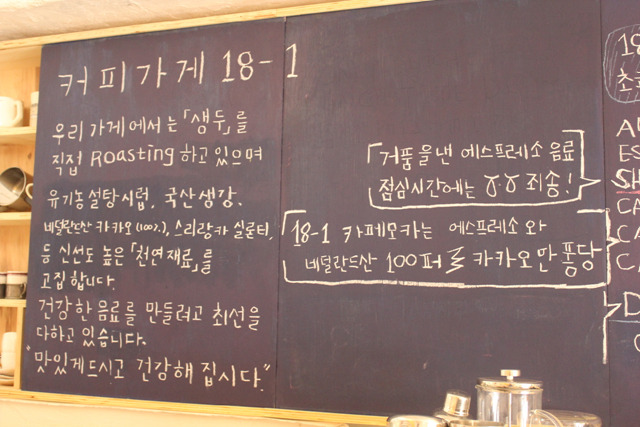 커피가게 18-1
우리 가게에서는 「생두」를
직접 Roasting 하고 있으며
유기농설탕시럽, 국산생강,
네덜란드산 카카오(100%), 스리랑카 실론티,
등 신선도 높은 「천연재료」를
고집합니다.
건강한 음료를 만들려고 최선을
다하고 있습니다.
"맛있게드시고 건강해 집시다."
「거품을낸 에스프레소 음료
점심시간에는 ㅠ.ㅠ 죄송!
18-1 카페모카는 에스프레소와
네덜란드산 100퍼 카카오만 퐁당
18
초
ES
SH
CA
CA
C
D